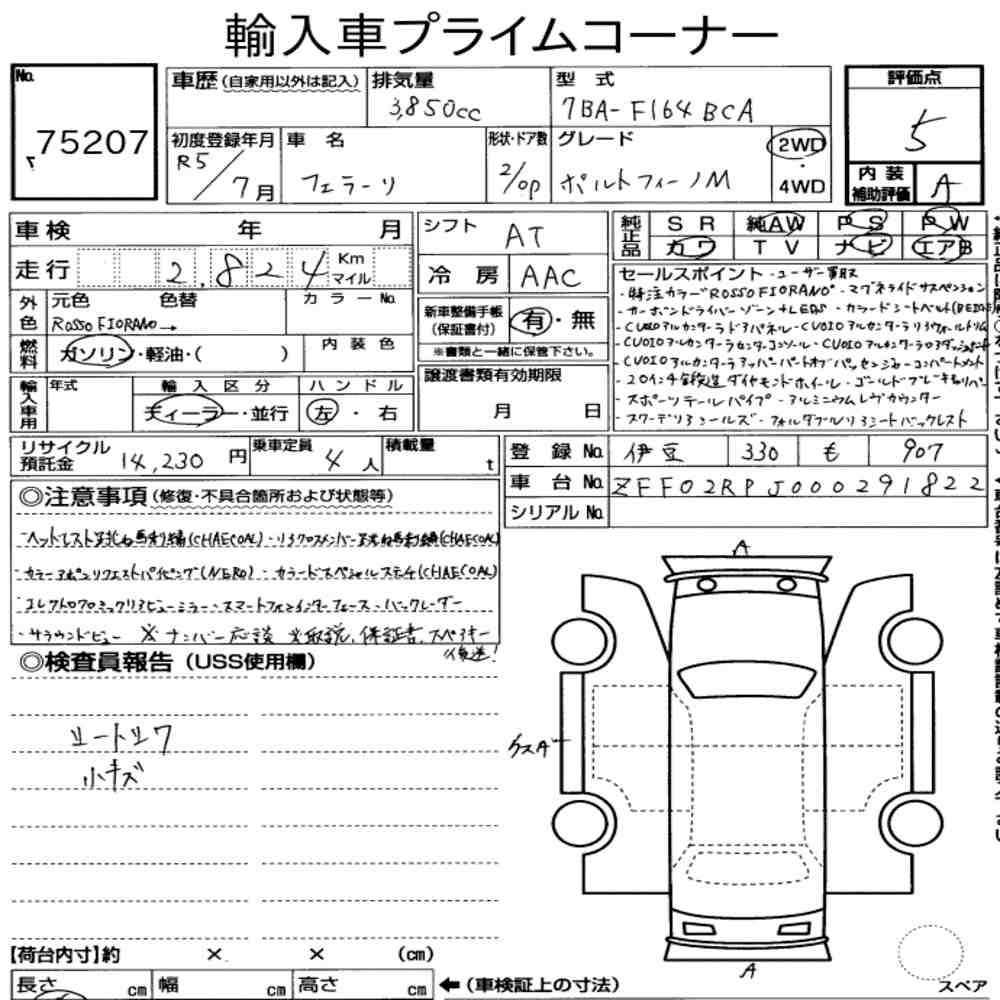 輸入車プライムコーナー
No. 75207
車歴(自家用以外は記入)
排気量 3,850cc
型式 7BA-F164BCA
評価点 5
初度登録年月 R5/7月
車名 フェラーリ
形状・ドア数 2/OP
グレード ポルトフィーノM
2WD・4WD
内装補助評価 A
車検 年 月
シフト AT
純正品 SR 純AW PS PW
カワ TV ナビ エアB
走行 2,824 Km マイル
冷房 AAC
セールスポイント ・ユーザー買取
・特注カラーROSSO FIORANO ・マグネライドサスペンション
・カーボンドライバーゾーン+LEDS ・カラードシートベルト
・CUOIOアルカンターラドアパネル
・CUOIOアルカンターラセンターコンソール
・CUOIOアルカンターラアッパーパートオブパッセンジャーコンパートメント
・20インチ鍛造ダイヤモンドホイール ・ゴールドブレーキキャリパー
・スポーツテールパイプ ・アルミニウムレヴカウンター
・スクーデリアシールズ ・フォルダブルリアシートバックレスト
外色 元色 ROSSO FIORANO→ 色替 カラーNo.
新車整備手帳(保証書付) 有・無
※書類と一緒に保管下さい。
燃料 ガソリン・軽油・( )
内装色
譲渡書類有効期限 月 日
輸入車用 年式 輸入区分 ディーラー・並行 ハンドル 左・右
リサイクル預託金 14,230円
乗車定員 4人
積載量 t
登録No. 伊豆 330 も 907
車台No. ZFF02RPJ000291822
シリアルNo.
◎注意事項(修復・不具合箇所および状態等)
ヘッドレスト跳ね馬刺繍(CHAECOAL)
・カラーアポンリクエストパイピング(NERO) ・カラードスペシャルステッチ(CHAECOAL)
エレクトロクロミックリアビューミラー ・スマートフォンインターフェース ・バックレーダー
・サラウンドビュー ※ナンバー応談 ※取説、保証書、スペアキー
後送!
◎検査員報告(USS使用欄)
シートシワ
小キズ
A
ケスガー
A
【荷台内寸】約 × × (cm)
長さ cm 幅 cm 高さ cm ←(車検証上の寸法)
スペア